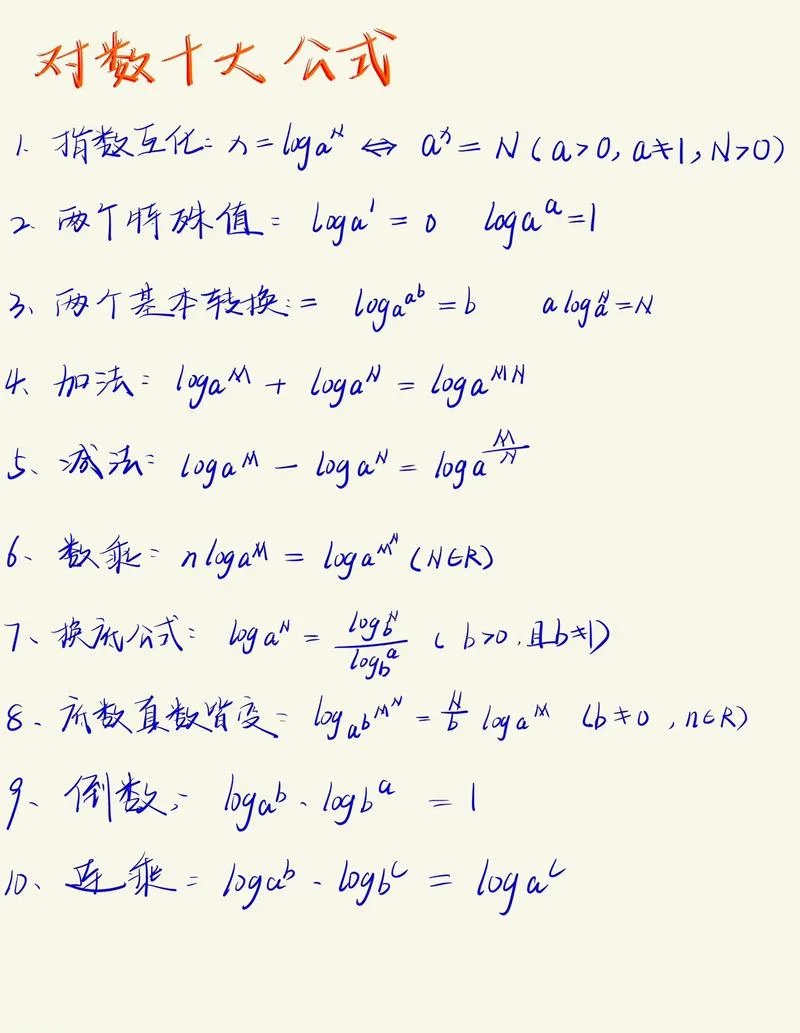 对数十大公式
1. 指数互化: x = logₐN ⇔ aˣ = N (a>0, a≠1, N>0)
2、两个特殊值: logₐ1 = 0 logₐa = 1
3、两个基本转换: = logₐaᵇ = b a^(logₐN) = N
4、加法: logₐM + logₐN = logₐMN
5、减法: logₐM - logₐN = logₐ(M/N)
6、数乘: n logₐM = logₐMᴺ (N∈R)
7、换底公式: logₐN = log_b N / log_b a ( b>0, 且b≠1)
8、底数真数皆变: log_(aᵇ) Mᴺ = N/b logₐM (b≠0, n∈R)
9、倒数: logₐb · log_b a = 1
10、连乘: logₐb · log_b c = logₐc